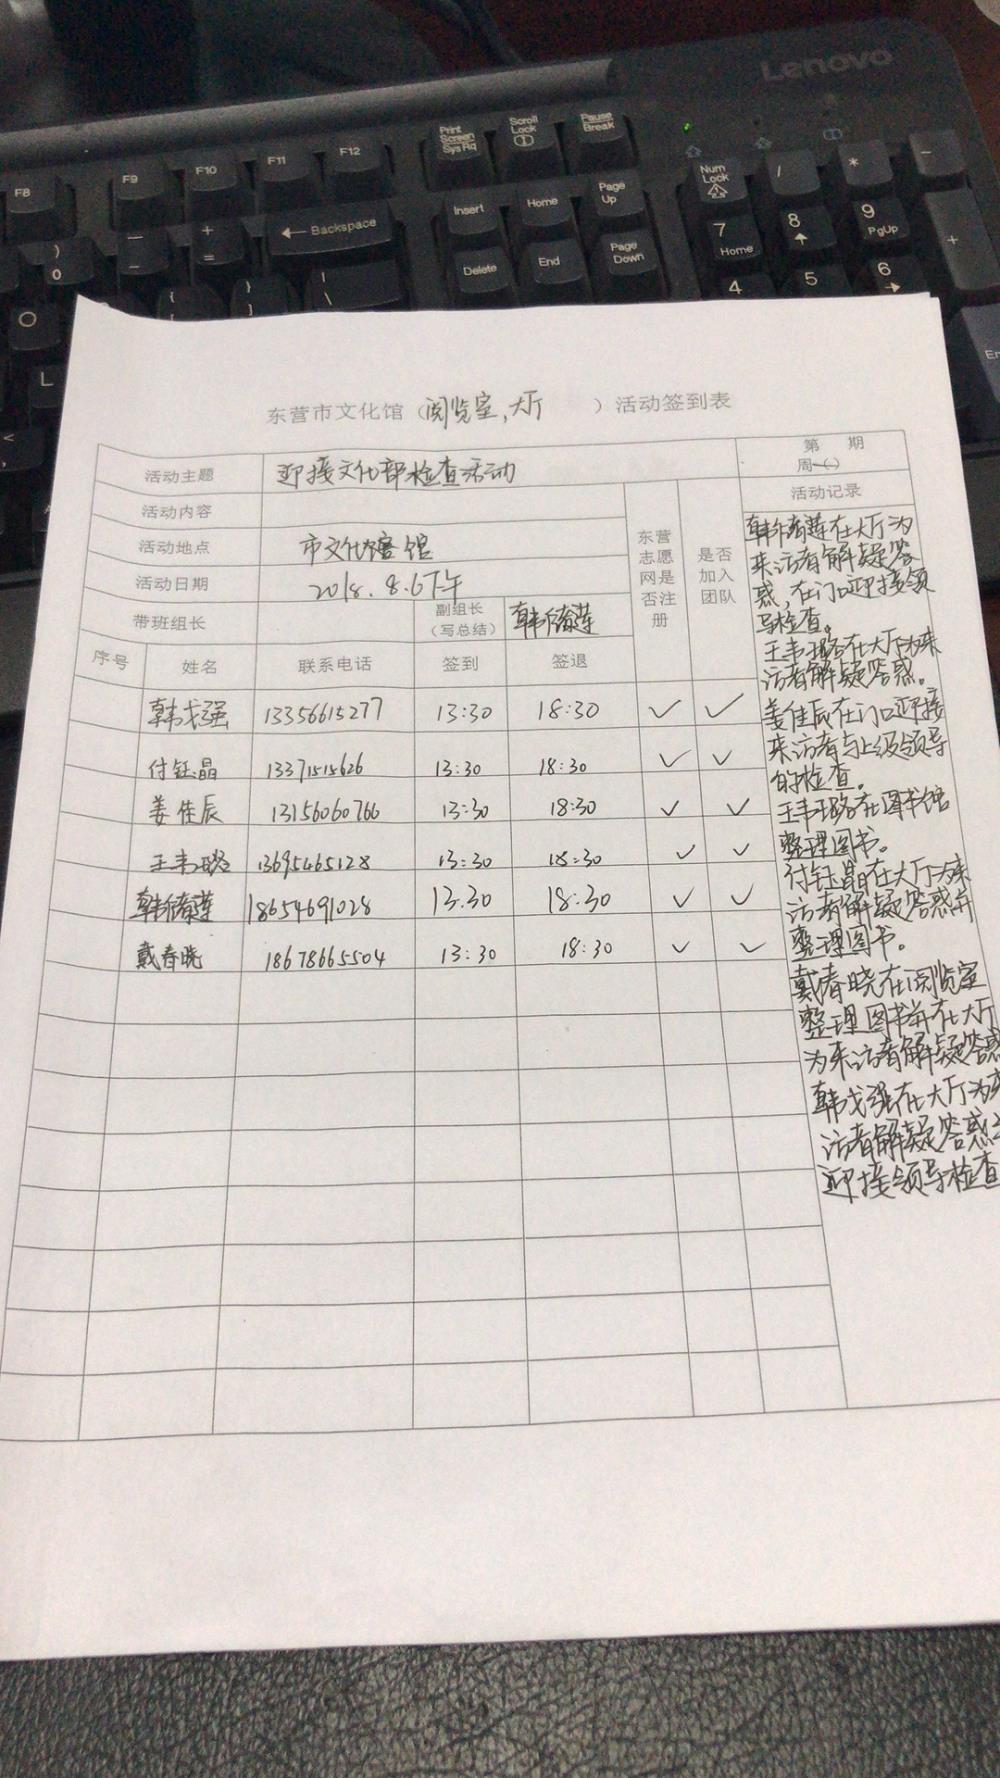 Lenovo
Print Screen SysRq
Scroll Lock
Pause Break
F8 F9 F10 F11 F12
Insert Home Page Up
Num Lock / * -
Backspace
7 Home 8 9 PgUp +
Delete End Page Down
) 0 _ - + =
4 5 6
{ [ } ] | \
O
L
东营市文化馆（阅览室,大厅 ）活动签到表
活动主题 迎接文化部检查活动 第 期
周( )
活动内容 活动记录
活动地点 市文化馆
活动日期 2018.8.6下午
带班组长 副组长（写总结）
东营志愿网是否注册
是否加入团队
序号 姓名 联系电话 签到 签退
韩戈强 13356615277 13:30 18:30 ✓ ✓
付钰晶 13371515626 13:30 18:30 ✓ ✓
姜佳辰 13156060766 13:30 18:30 ✓ ✓
王韦璐 13695465128 13:30 18:30 ✓ ✓
18654691028 13.30 18:30 ✓ ✓
戴春晓 18678665504 13:30 18:30 ✓ ✓
在大厅为
来访者解疑答
惑,在门口迎接领
导检查。
王韦璐在大厅为来
访者解疑答惑。
姜佳辰在门口迎接
来访者与上级领导
的检查。
王韦璐在图书馆
整理图书。
付钰晶在大厅为来
访者解疑答惑并
整理图书。
戴春晓在阅览室
整理图书并在大厅
为来访者解疑答惑
韩戈强在大厅为来
访者解疑答惑
迎接领导检查